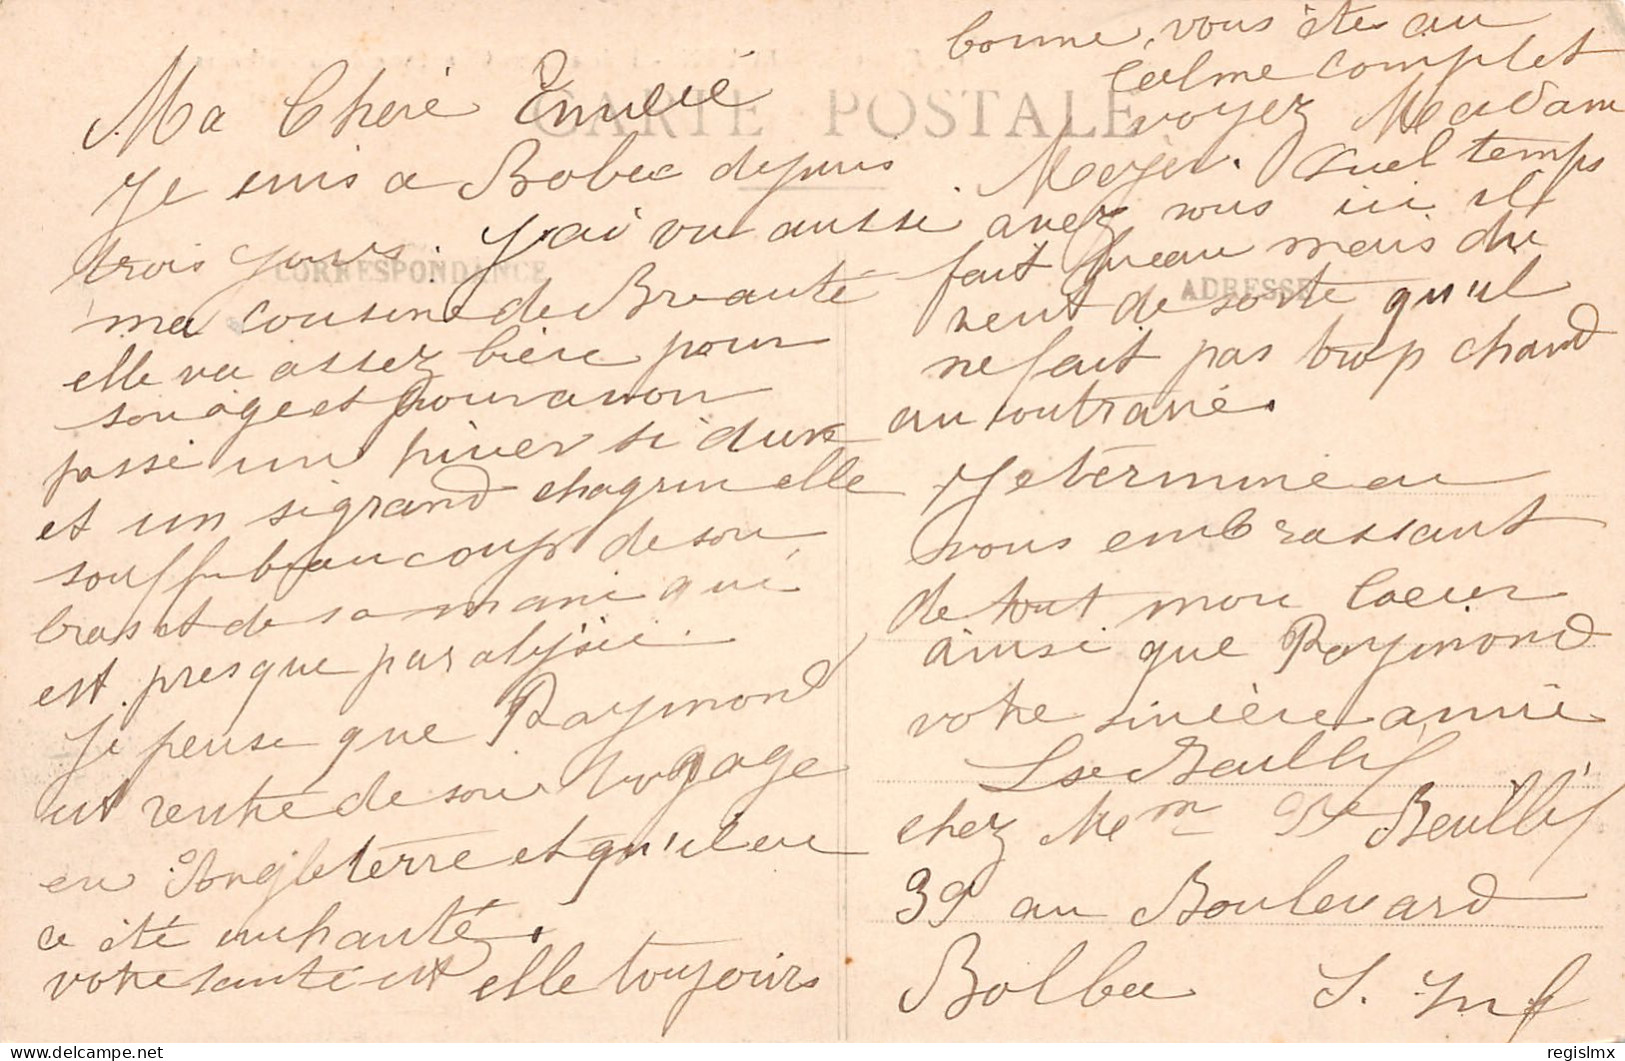 CARTE POSTALE
CORRESPONDANCE
ADRESSE
Ma Chère Emilie
Je suis a Bolbec depuis
trois jours. J'ai vu aussi
ma cousine de Breauté
elle va assez bien pour
son age et pour avoir
passé un hiver si dure
et un si grand chagrin elle
souffre beaucoup de son
bras et de sa main qui
est presque paralysée.
Je pense que Raymond
est rentré de son voyage
en Angleterre et qu'il en
a été enchanté.
votre santé est elle toujours
bonne, vous ète au
Calme complet
voyez Madam
Meyer. Quel temps
avez vous ici il
fait beau mais du
vent de sorte qu'il
ne fait pas trop chaud
au contraire.
Je termine en
vous embrassant
de tout mon Coeur
ainsi que Raymond
votre sincère amie
chez Mem
39 au Boulevard
Bolbec S. Inf
regislmx